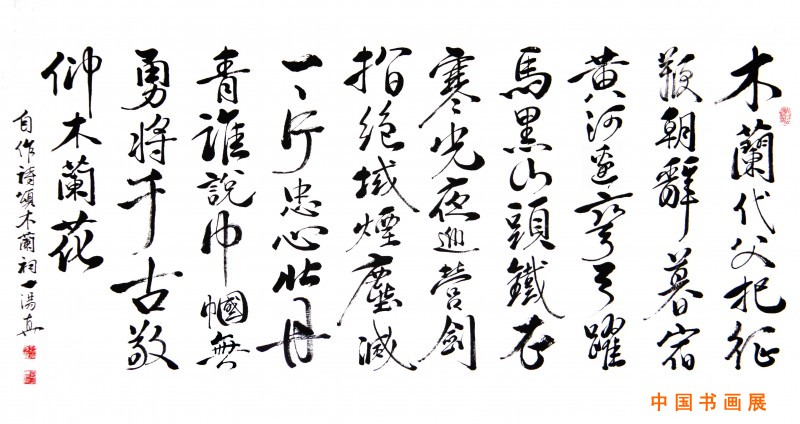 木蘭代父把征
鞍朝辭暮宿
黄河邊彎弓躍
馬黑山頭鐵衣
寒光夜巡營劍
指絕域煙塵滅
一片忠心壯丹
青誰說巾幗無
勇將千古敬
仰木蘭花
自作詩頌木蘭祠一湯真
中国书画展